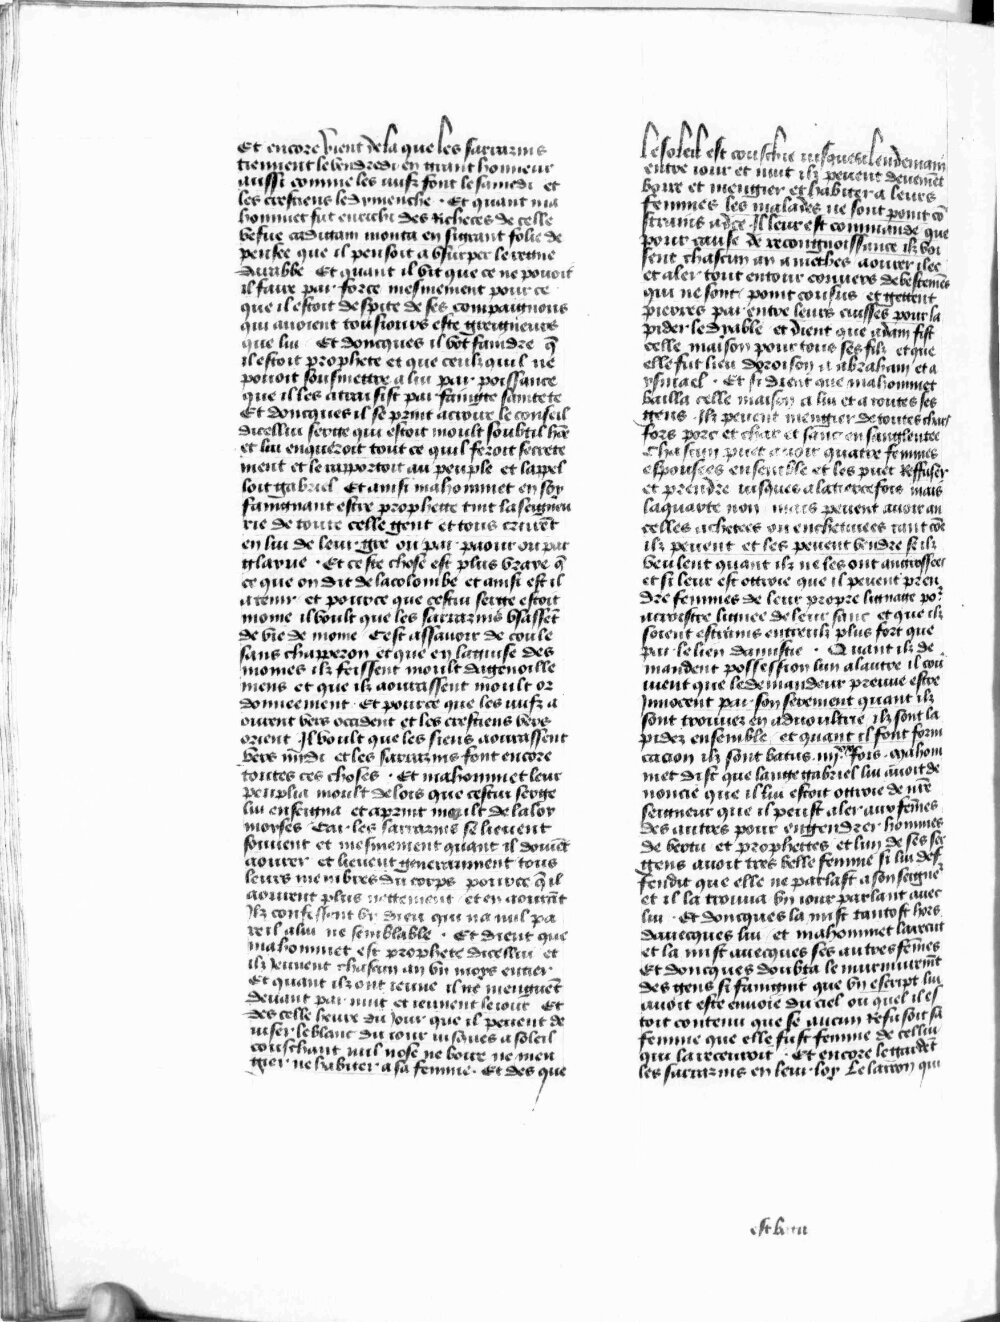 Et encore vient de la que les sarrazins
tiennent le vendredi en grant honneur
aussi comme les iuifz font le samedi et
les crestiens le dymenche . Et quant ma
hommet fut enrichi des richeces de celle
vefue cadigam monta en si grant folie de
pensee que il pensoit a vsurper le regne
darabbe Et quant il vit que ce ne pouoit
il faire par force mesmement pour ce
que il estoit despite de ses compaignons
qui auoient tousiours este greigneurs
que lui Et doncques il vot faindre q̄
il estoit prophete et que ceulx quil ne
pouoit soufmettre a lui par poissance
que il les attraisist par fainte saintete
Et doncques il se print a croire le conseil
dicellui serge qui estoit moult soubtil hōe
et lui enqueroit tout ce quil feroit secrete
ment et le rapportoit au peuple et lappel
loit gabriel Et ainsi mahommet en soy
faingnant estre prophete tint la seigneu
rie de toute celle gent et tous creurēt
en lui de leur gre ou par paour ou par
glaiue . Et ceste chose est plus vraye q̄
ce que on dit de la colombe et ainsi est il
a tenir et pource que cestui serge estoit
moine il voult que les sarrazins vsassēt
de vie de moine Cest assauoir de coule
sans chapperon et que en la guise des
moines ilz feissent moult dagenoille
mens et que ilz aourassent moult or
donneement . Et pource que les iuifz a
ourent vers occident et les crestiens vers
orient Il voult que les siens aourassent
vers midi et les sarrazins font encore
toutes ces choses . Et mahommet leur
peuplia moult de lois que cestui serge
lui enseigna et aprint moult de la loy
moyses Car les sarrazins se lieuent
souuent et mesmement quant il doiuēt
aourer et lieuent generaument tous
leurs membres du corps pource q̄ il
aourent plus nettement et en aourāt
Ilz confessent vn dieu qui na nul pa
reil a lui ne semblable . Et dient que
mahommet est prophete dicellui et
ilz ieunent chascun an vn moys entier
Et quant ilz ont ieune il ne menguēt
deuant par nuit et ieunent le iour Et
des celle heure du iour que il peuent de
uiser le blanc du noir iusques a soleil
couschant nul nose ne boire ne men
gier ne habiter a sa femme . Et des que
le soleil est couschie iusques a lendemain
entre iour et nuit ilz peuent deuemēt
boire et mengier et habiter a leurs
femmes les malades ne sont point cō
strains a de ce . Il leur est commande que
pour cause de recongnoissance ilz voi
sent chascun an a methes aourer ilec
et aler tout entour couuers de vestemēs
qui ne sont point cousus et gettent
pierres par entre leurs cuisses pour la
pider le dyable et dient que adam fist
celle maison pour tous ses filz et que
elle fut lieu doroison a abraham et a
ysmael . Et si dient que mahommet
bailla celle maison a lui et a toutes ses
gens . Ilz peuent mengier de toutes chars
fors porc et char et sanc en sanglentee
Chascun puet auoir quatre femmes
espousees ensemble et les puet reffuser
et prendre iusques a la tierce fois mais
la quarte non mais peuent auoir au
celles achetees ou enchetiuees tant cōe
ilz peuent et les peuent vendre se ilz
veulent quant ilz ne les ont angrossees
et si leur est ottroie que il peuent pren
dre femmes de leur propre lignage poᵉ
acroistre lignee de leur sanc et que ilz
soient estrains entreulz plus fort que
par le lien damistie . Quant ilz de
mandent possession lun a lautre il con
uient que le demandeur preuue estre
Innocent par son serement quant ilz
sont trouuez en aduoultire ilz sont la
pidez ensemble et quant il font forni
cacion ilz sont batus .iiijˣˣ. fois . Mahom
met dist que lange gabriel lui auoit de
noncie que il lui estoit ottroie de nr̄e
seigneur que il peust aler aux fēmes
des autres pour engendrer hommes
de vertu et prophettes et lun de ses ser
gens auoit tres belle femme si lui def
fendit que elle ne parlast a son seignēᵉ
et il la trouua vn iour parlant auec
lui . Et doncques la mist tantost hors
dauecques lui et mahommet la recut
et la mist auecques ses autres fēmes
Et doncques doubta le murmuremēt
des gens si faingnit que vn escript lui
auoit este enuoie du ciel ou quel il es
toit contenu que se aucun refusoit sa
femme que elle fust femme de cellui
qui la receuroit . Et encore le gardēt
les sarrazins en leur loy Le larron qui
est batu